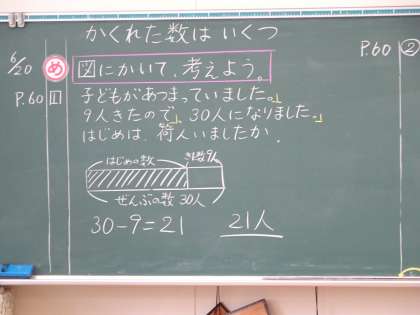 かくれた数は いくつ
6/20 め 図にかいて、考えよう。
P.60 1 子どもがあつまっていました。」
9人きたので」、30人になりました。」
はじめは、荷人いましたか。
はじめの数 きた数9人
ぜんぶの数 30人
30-9=21 21人
P.60 ②